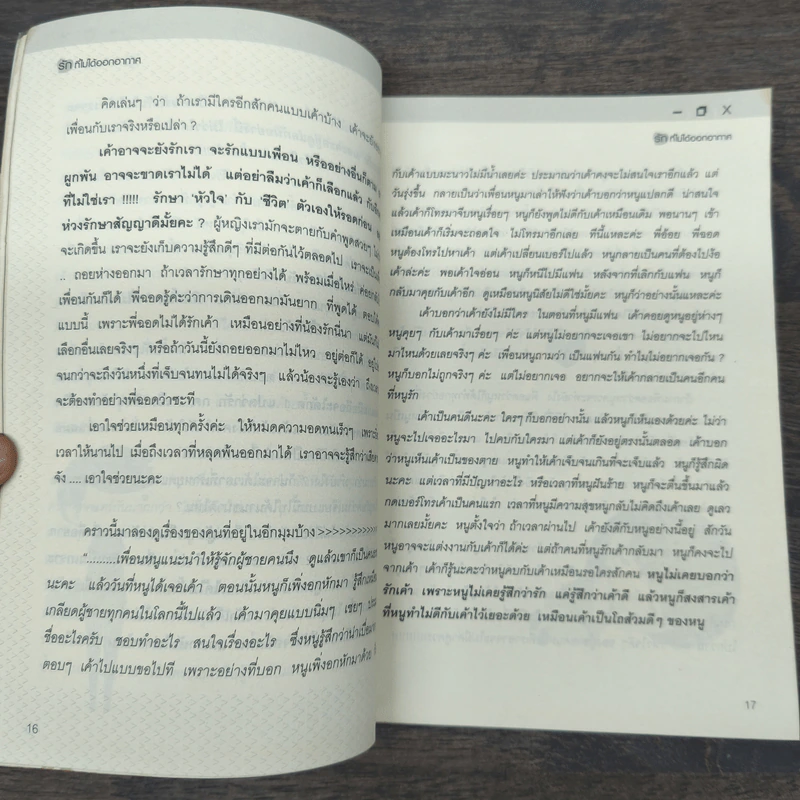 รัก ที่ไม่ได้ออกอากาศ
คิดเล่นๆ ว่า ถ้าเรามีใครอีกสักคนแบบเค้าบ้าง เค้าจะยัง
เพื่อนกับเราจริงหรือเปล่า ?
เค้าอาจจะยังรักเรา จะรักแบบเพื่อน หรืออย่างอื่นก็ตาม
ผูกพัน อาจจะขาดเราไม่ได้ แต่อย่าลืมว่าเค้าก็เลือกแล้ว
ที่ไม่ใช่เรา !!!!! รักษา 'หัวใจ' กับ 'ชีวิต' ตัวเองให้รอดก่อน
ห่วงรักษาสัญญาดีมั้ยคะ ? ผู้หญิงเรามักจะตายกับคำพูดสวยๆ
จะเกิดขึ้น เราจะยังเก็บความรู้สึกดีๆ ที่มีต่อกันไว้ตลอดไป
.. ถอยห่างออกมา ถ้าเวลารักษาทุกอย่างได้ พร้อมเมื่อไหร่
เพื่อนกันก็ได้ พี่ฉอดรู้ค่ะว่าการเดินออกมามันยาก ที่พูดได้
แบบนี้ เพราะพี่ฉอดไม่ได้รักเค้า เหมือนอย่างที่น้องรักนี่นา
เลือกอื่นเลยจริงๆ หรือถ้าวันนี้ยังถอยออกมาไม่ไหว อยู่ต่อก็ได้
จนกว่าจะถึงวันหนึ่งที่เจ็บจนทนไม่ได้จริงๆ แล้วน้องจะรู้เองว่า
จะต้องทำอย่างพี่ฉอดว่าซะที
เอาใจช่วยเหมือนทุกครั้งค่ะ ให้หมดความอดทนเร็วๆ
เวลาให้นานไป เมื่อถึงเวลาที่หลุดพ้นออกมาได้ เราอาจจะรู้สึกว่า
จัง .... เอาใจช่วยนะคะ
คราวนี้มาลองดูเรื่องของคนที่อยู่ในอีกมุมบ้าง >>>>>>>>>>>
"..........เพื่อนหนูแนะนำให้รู้จักผู้ชายคนนึง ดูแล้วเขาก็เป็นคน
นะคะ แล้ววันที่หนูได้เจอเค้า ตอนนั้นหนูก็เพิ่งอกหักมา
เกลียดผู้ชายทุกคนในโลกนี้ไปแล้ว เค้ามาคุยแบบนิ่มๆ เชยๆ
ชื่ออะไรครับ ชอบทำอะไร สนใจเรื่องอะไร ซึ่งหนูรู้สึกว่าน่าเบื่อ
ตอบๆ เค้าไปแบบขอไปที เพราะอย่างที่บอก หนูเพิ่งอกหักมาด้วย
16
รัก ที่ไม่ได้ออกอากาศ
กับเค้าแบบมะนาวไม่มีน้ำเลยค่ะ ประมาณว่าเค้าคงจะไม่สนใจเราอีกแล้ว แต่
วันรุ่งขึ้น กลายเป็นว่าเพื่อนหนูมาเล่าให้ฟังว่าเค้าบอกว่าหนูแปลกดี น่าสนใจ
แล้วเค้าก็โทรมาจีบหนูเรื่อยๆ หนูก็ยังพูดไม่ดีกับเค้าเหมือนเดิม พอนานๆ เข้า
เหมือนเค้าก็เริ่มจะถอดใจ ไม่โทรมาอีกเลย ทีนี้แหละค่ะ พี่อ้อย พี่ฉอด
หนูต้องโทรไปหาเค้า แต่เค้าเปลี่ยนเบอร์ไปแล้ว หนูกลายเป็นคนที่ต้องไปง้อ
เค้าล่ะค่ะ พอเค้าใจอ่อน หนูก็หนีไปมีแฟน หลังจากที่เลิกกับแฟน หนูก็
กลับมาคุยกับเค้าอีก ดูเหมือนหนูนิสัยไม่ดีใช่มั้ยคะ หนูก็ว่าอย่างนั้นแหละค่ะ
เค้าบอกว่าเค้ายังไม่มีใคร ในตอนที่หนูมีแฟน เค้าคอยดูหนูอยู่ห่างๆ
หนูคุยๆ กับเค้ามาเรื่อยๆ ค่ะ แต่หนูไม่อยากจะเจอเขา ไม่อยากจะไปไหน
มาไหนด้วยเลยจริงๆ ค่ะ เพื่อนหนูถามว่า เป็นแฟนกัน ทำไมไม่อยากเจอกัน ?
หนูก็บอกไม่ถูกจริงๆ ค่ะ แต่ไม่อยากเจอ อยากจะให้เค้ากลายเป็นคนอีกคน
ที่หนูรัก
เค้าเป็นคนดีนะคะ ใครๆ ก็บอกอย่างนั้น แล้วหนูก็เห็นเองด้วยค่ะ ไม่ว่า
หนูจะไปเจออะไรมา ไปคบกับใครมา แต่เค้าก็ยังอยู่ตรงนั้นตลอด เค้าบอก
ว่าหนูเห็นเค้าเป็นของตาย หนูทำให้เค้าเจ็บจนเกินที่จะเจ็บแล้ว หนูก็รู้สึกผิด
นะคะ แต่เวลาที่มีปัญหาอะไร หรือเวลาที่หนูฝันร้าย หนูก็จะตื่นขึ้นมาแล้ว
กดเบอร์โทรเค้าเป็นคนแรก เวลาที่หนูมีความสุขหนูกลับไม่คิดถึงเค้าเลย ดูเลว
มากเลยมั้ยคะ หนูตั้งใจว่า ถ้าเวลาผ่านไป เค้ายังดีกับหนูอย่างนี้อยู่ สักวัน
หนูอาจจะแต่งงานกับเค้าก็ได้ค่ะ แต่ถ้าคนที่หนูรักเค้ากลับมา หนูก็คงจะไป
จากเค้า เค้าก็รู้นะคะว่าหนูคบกับเค้าเหมือนรอใครสักคน หนูไม่เคยบอกว่า
รักเค้า เพราะหนูไม่เคยรู้สึกว่ารัก แค่รู้สึกว่าเค้าดี แล้วหนูก็สงสารเค้า
ที่หนูทำไม่ดีกับเค้าไว้เยอะด้วย เหมือนเค้าเป็นโถส้วมดีๆ ของหนู
17